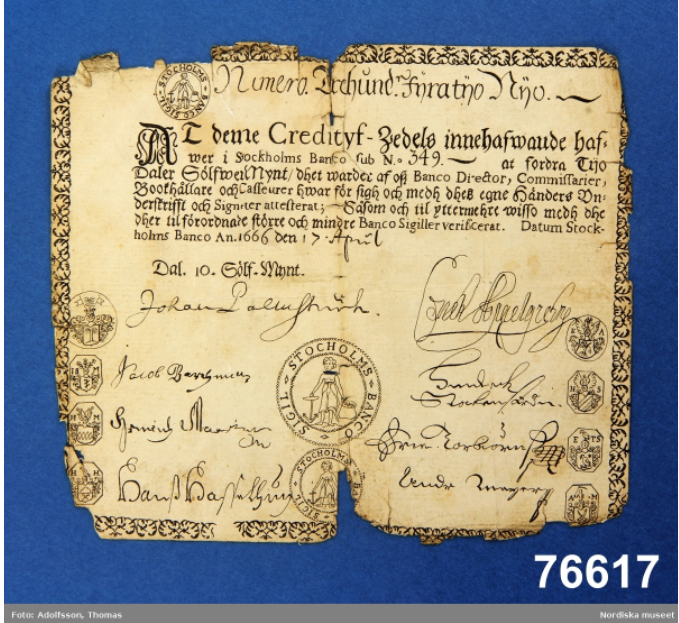 STOCHOLMS BANCO SIGIL
Numero. Trehund. Fyratijo Nijo.
AT denne Credityf-Zedels innehafwande haf-
wer i Stockholms Banco sub N.o 349. at fordra Tijo
Daler Sölfwer Mynt/ dhet warder af oß Banco Director, Commissarier,
Bookhållare och Casseurer hwar för sigh och medh dheß egne Händers Vn-
derskrifft och Signeter attesterat; Såsom och til yttermehre wisso medh dhe
dher til förordnade större och mindre Banco Sigiller verificerat. Datum Stock-
holms Banco An. 1666 den 17. April
Dal. 10. Sölf-Mynt.
Johan Palmstruch.
STOCHOLMS BANCO SIGIL
Jacob
Hendrich
STOCHOLMS BA
Hanß
76617
Foto: Adolfsson, Thomas
Nordiska museet